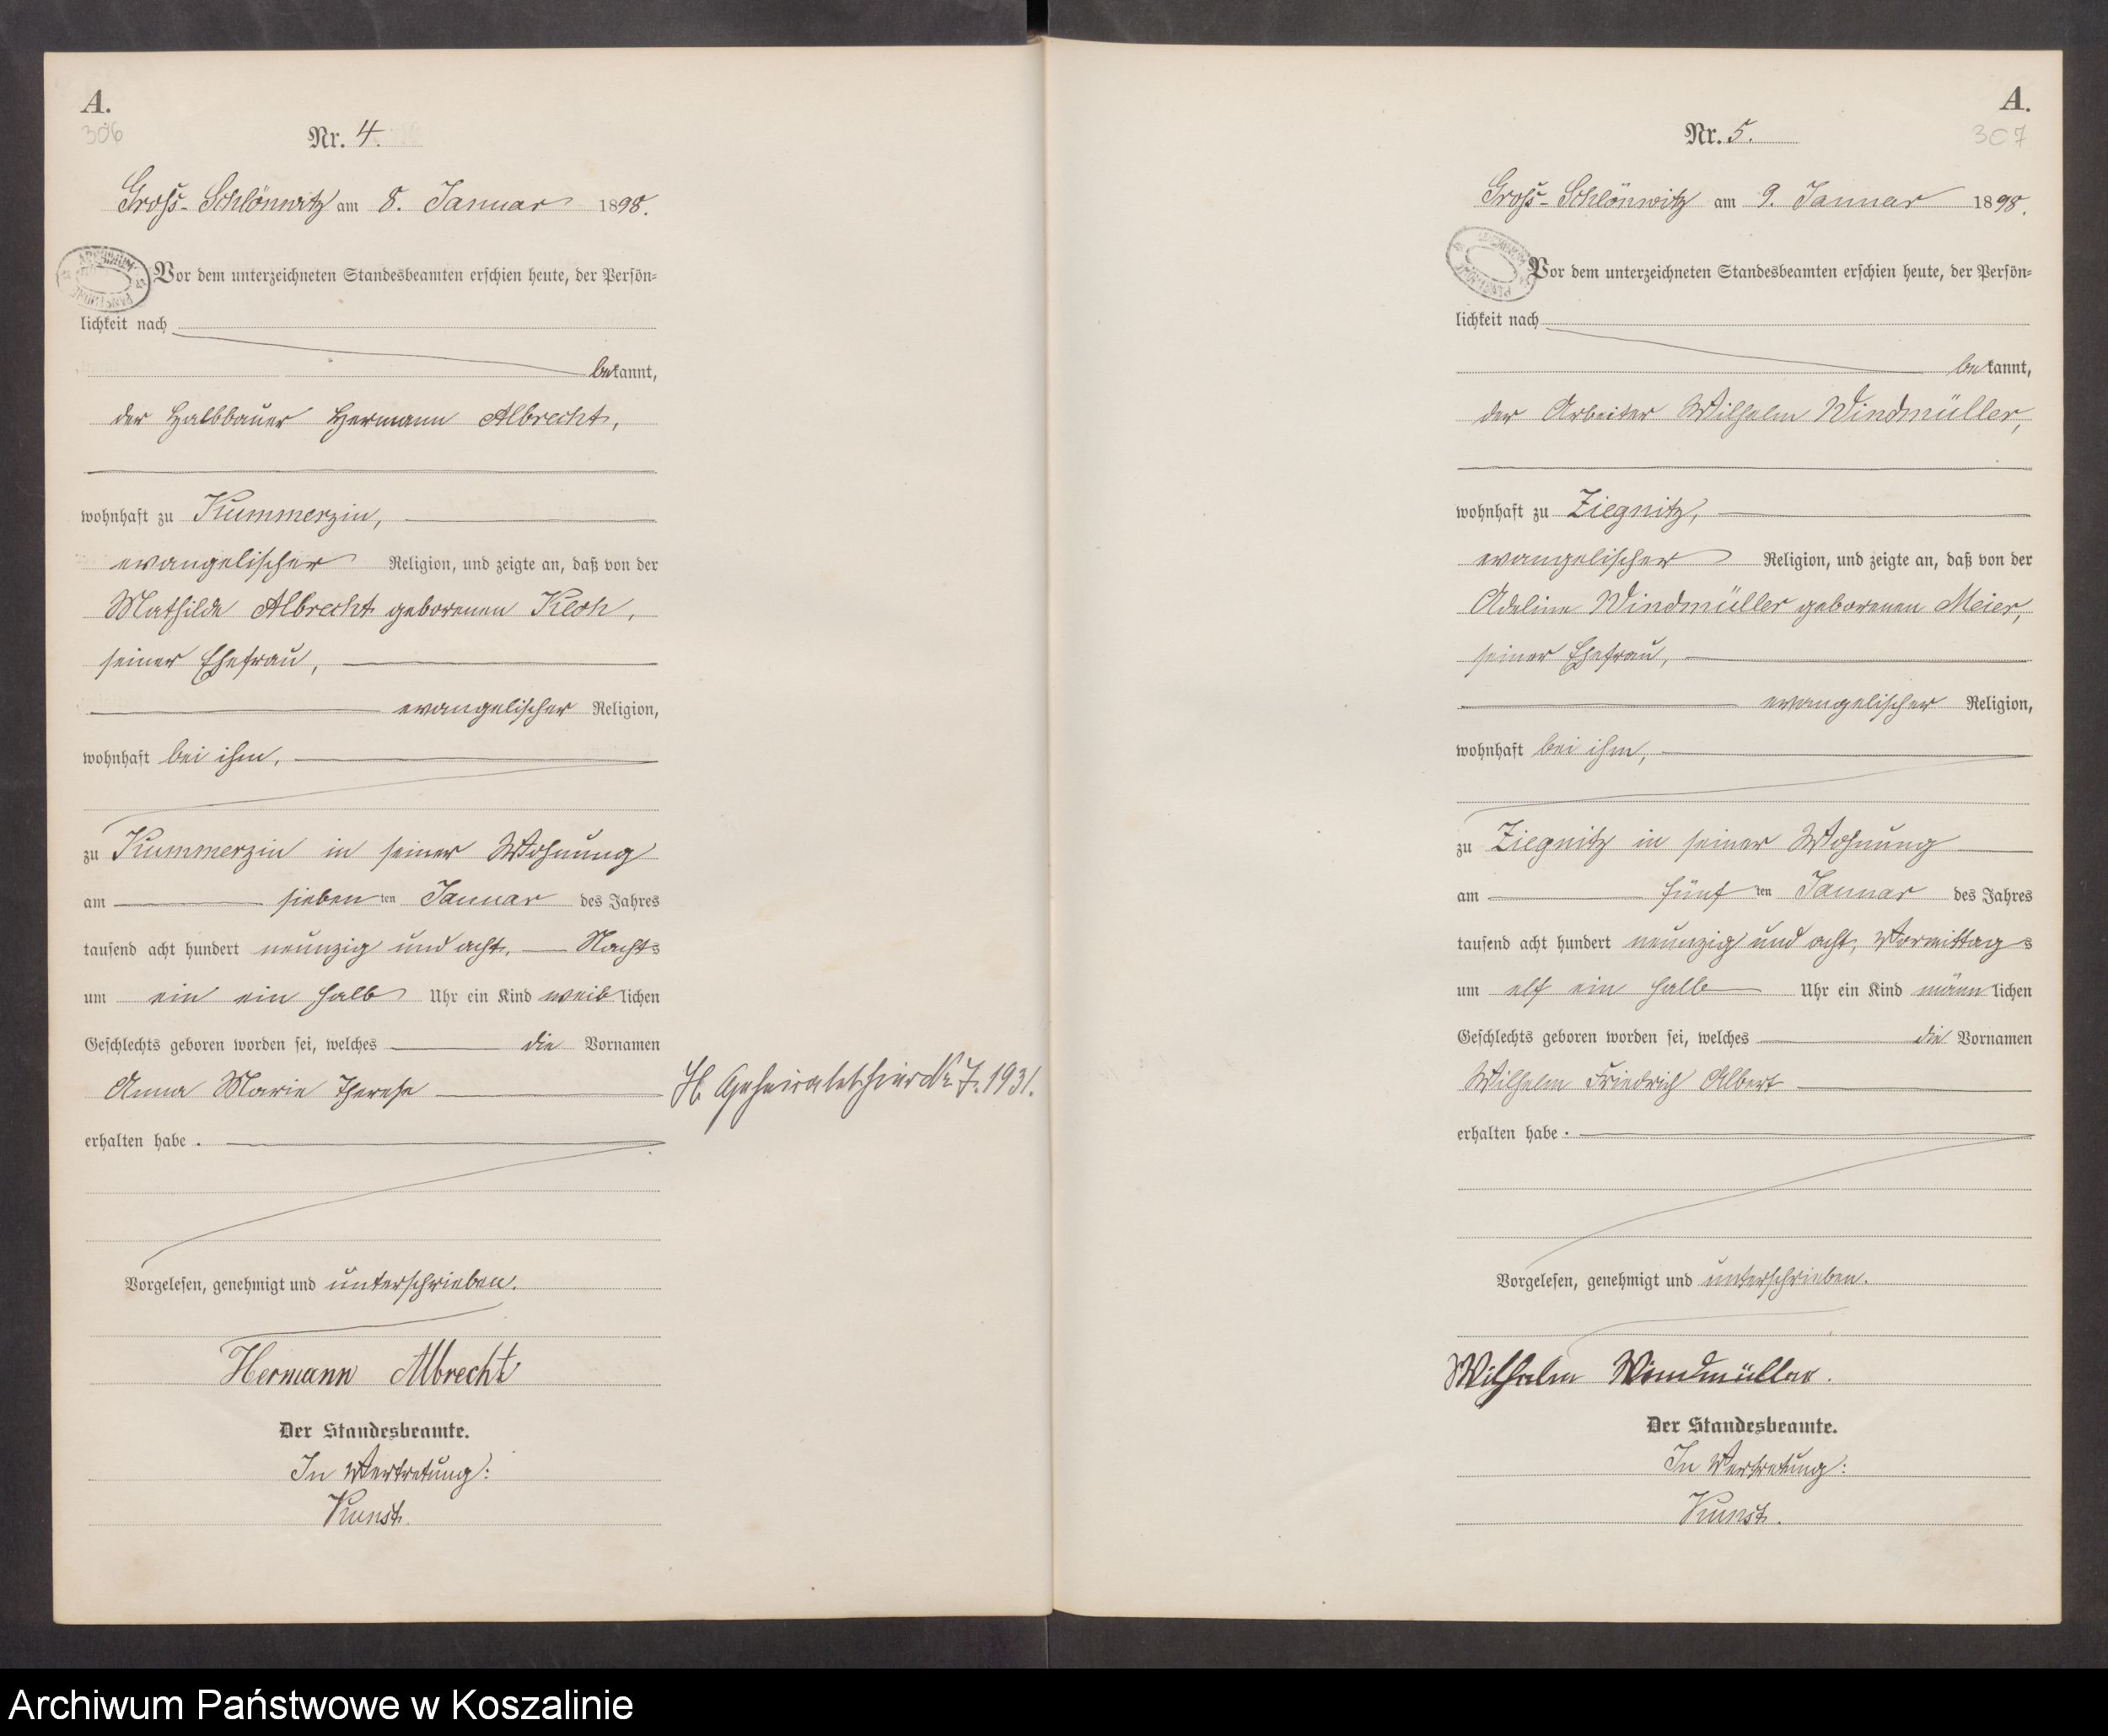 A.
306
Nr. 4.
Groß-Schlönwitz am 8. Januar 1898.
Vor dem unterzeichneten Standesbeamten erschien heute, der Persön-
lichkeit nach
bekannt,
der Halbbauer Hermann Albrecht,
wohnhaft zu Kummerzin,
evangelischer Religion, und zeigte an, daß von der
Mathilde Albrecht geborenen
seiner Ehefrau,
evangelischer Religion,
wohnhaft bei ihm,
zu Kummerzin in seiner Wohnung
am sieben ten Januar des Jahres
tausend acht hundert neunzig und acht, Nachts
um ein ein halb Uhr ein Kind weiblichen
Geschlechts geboren worden sei, welches die Vornamen
Anna Marie Therese
erhalten habe.
Vorgelesen, genehmigt und unterschrieben.
Hermann Albrecht
Der Standesbeamte.
In Vertretung:
Kunst.
7. 1931.
A.
307
Nr. 5.
Groß-Schlönwitz am 9. Januar 1898.
Vor dem unterzeichneten Standesbeamten erschien heute, der Persön-
lichkeit nach
bekannt,
der Arbeiter Wilhelm Windmüller,
wohnhaft zu Ziegnitz,
evangelischer Religion, und zeigte an, daß von der
Adeline Windmüller geborenen Meier,
seiner Ehefrau,
evangelischer Religion,
wohnhaft bei ihm,
zu Ziegnitz in seiner Wohnung
am fünf ten Januar des Jahres
tausend acht hundert neunzig und acht, Vormittags
um elf ein halb Uhr ein Kind männlichen
Geschlechts geboren worden sei, welches die Vornamen
Wilhelm Friedrich Albert
erhalten habe.
Vorgelesen, genehmigt und unterschrieben.
Wilhelm Windmüller.
Der Standesbeamte.
In Vertretung:
Kunst.
Archiwum Państwowe w Koszalinie